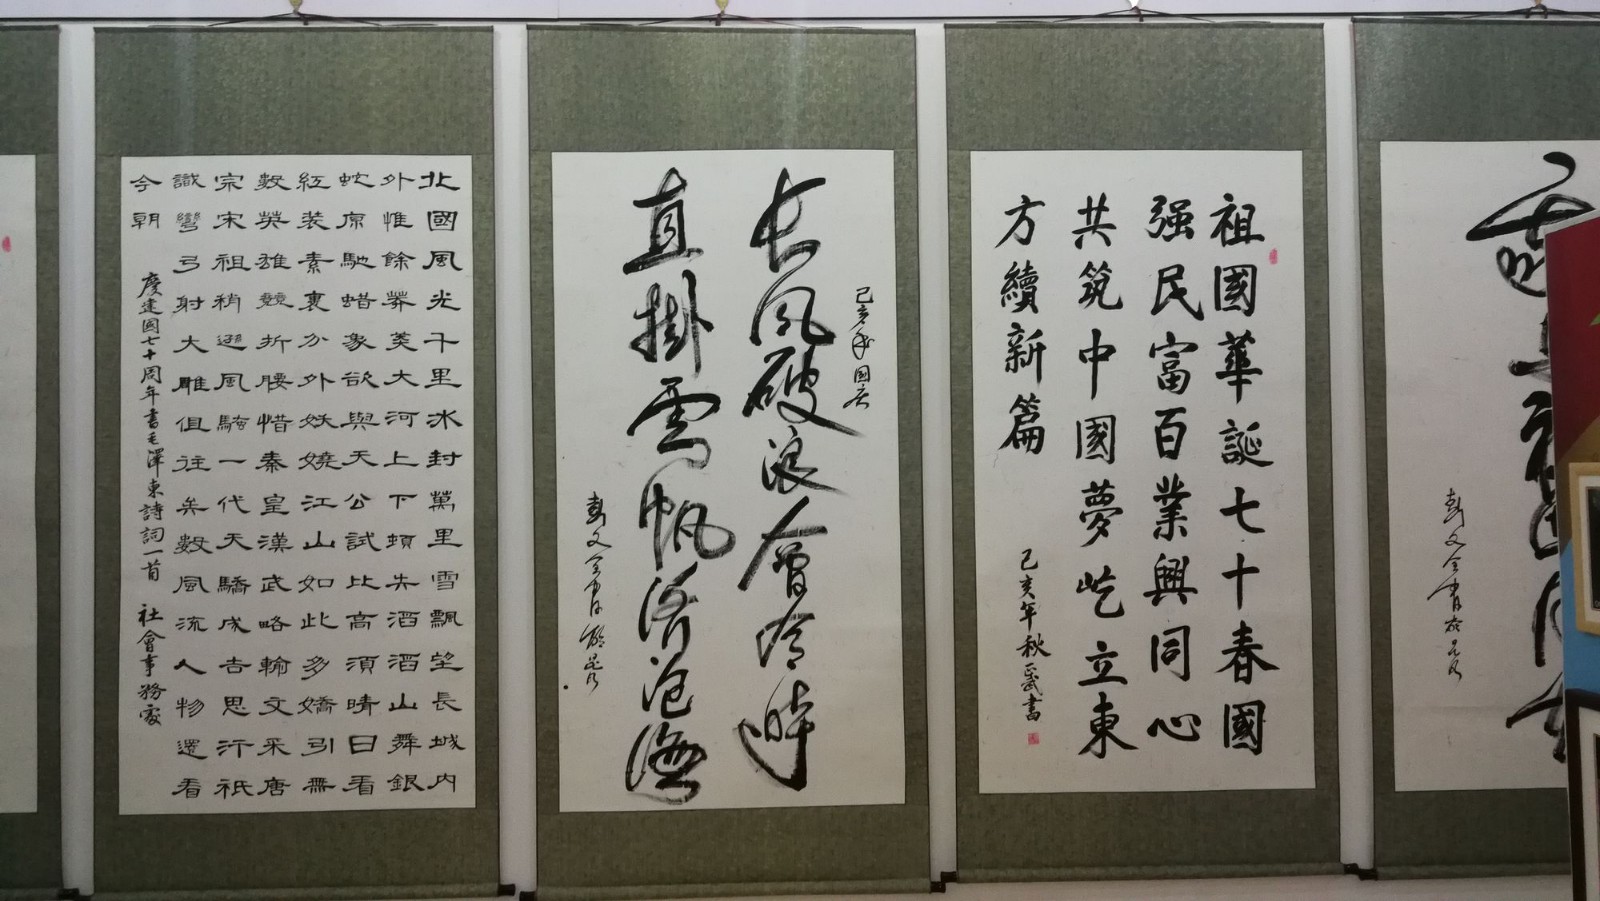 北國風光千里冰封萬里雪飄望長城内
外惟餘莽莽大河上下頓失滔滔山舞銀
蛇原馳蜡象欲與天公試比高須晴日看
紅装素裹分外妖嬈江山如此多嬌引無
數英雄競折腰惜秦皇漢武略輸文采唐
宗宋祖稍遜風騷一代天驕成吉思汗祇
識彎弓射大雕俱往矣數風流人物還看
今朝
慶建國七十周年書毛澤東詩詞一首 社會事務處
己亥年國庆
長风破浪會有時
直掛雲帆濟滄海
祖國華誕七十春國
强民富百業興同心
共筑中國夢屹立東
方續新篇
己亥年秋武書